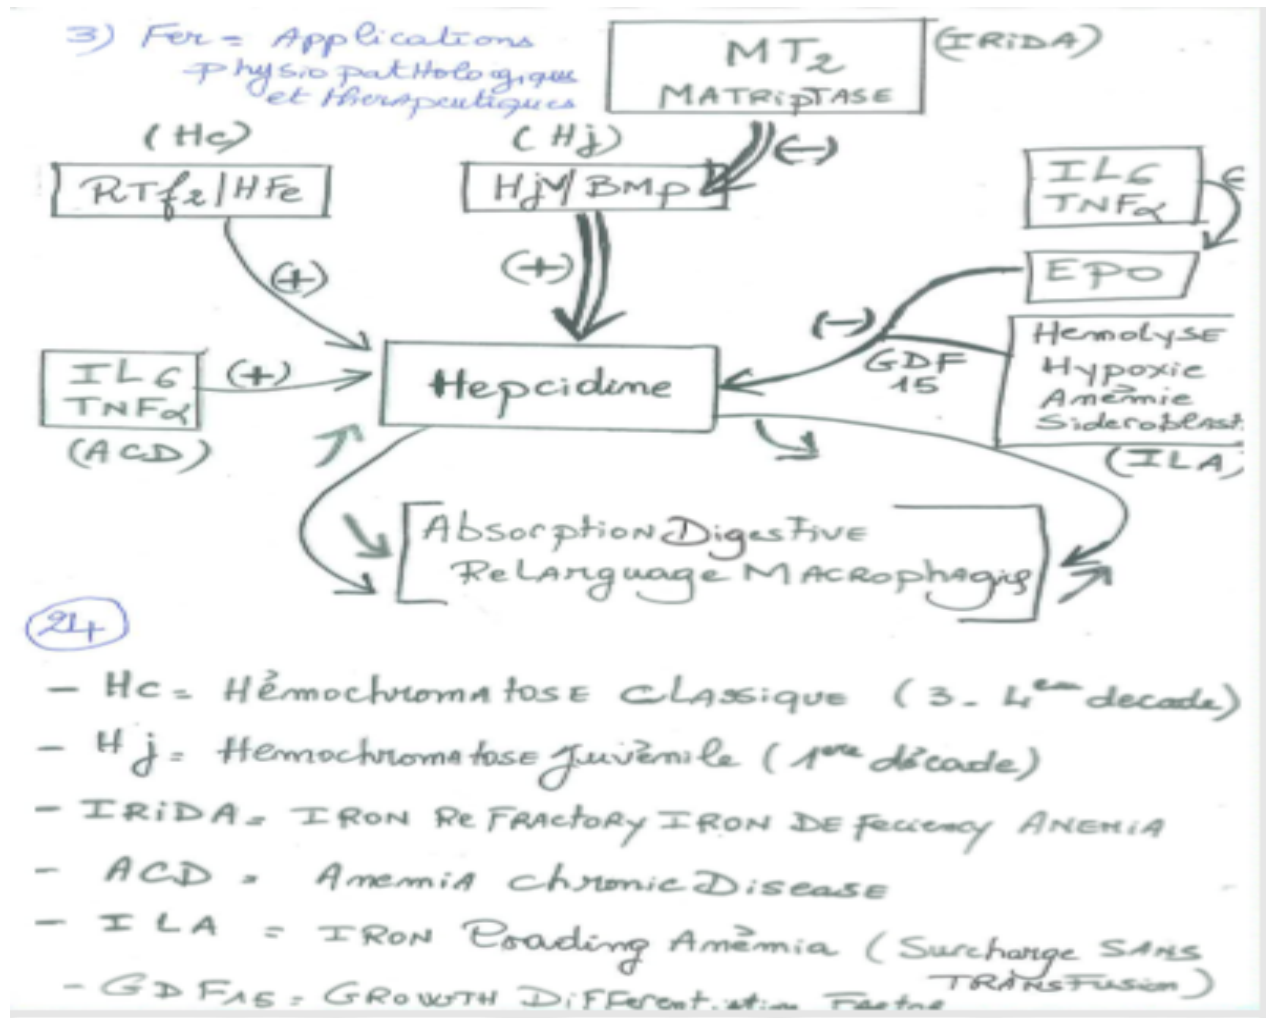 3) Fer = Applications
physiopathologiques
et therapeutiques
MT2
MATRiPTASE
(IRiDA)
(Hc)
RTf2/HFe
(Hj)
HjV/BMP
(-)
IL6
TNFα
EPO
(+)
(+)
(-)
GDF
15
Hemolyse
Hypoxie
Anémie
Sideroblast
(ILA)
IL6
TNFα
(ACD)
(+)
Hepcidine
Absorption Digestive
Relarguage MACROphagiq
24
- Hc = Hémochromatose CLAssique (3-4eme decade)
- Hj = Hemochromatose Juvénile (1ere décade)
- IRiDA = IRON ReFRActoRY IRON DEFeciency ANEMiA
- ACD = AnemiA chronic Disease
- ILA = IRON Loading Anémia (Surcharge SANS
TRANSFusion)
- GDF15 = GROWTH DiFFerentiation Factor